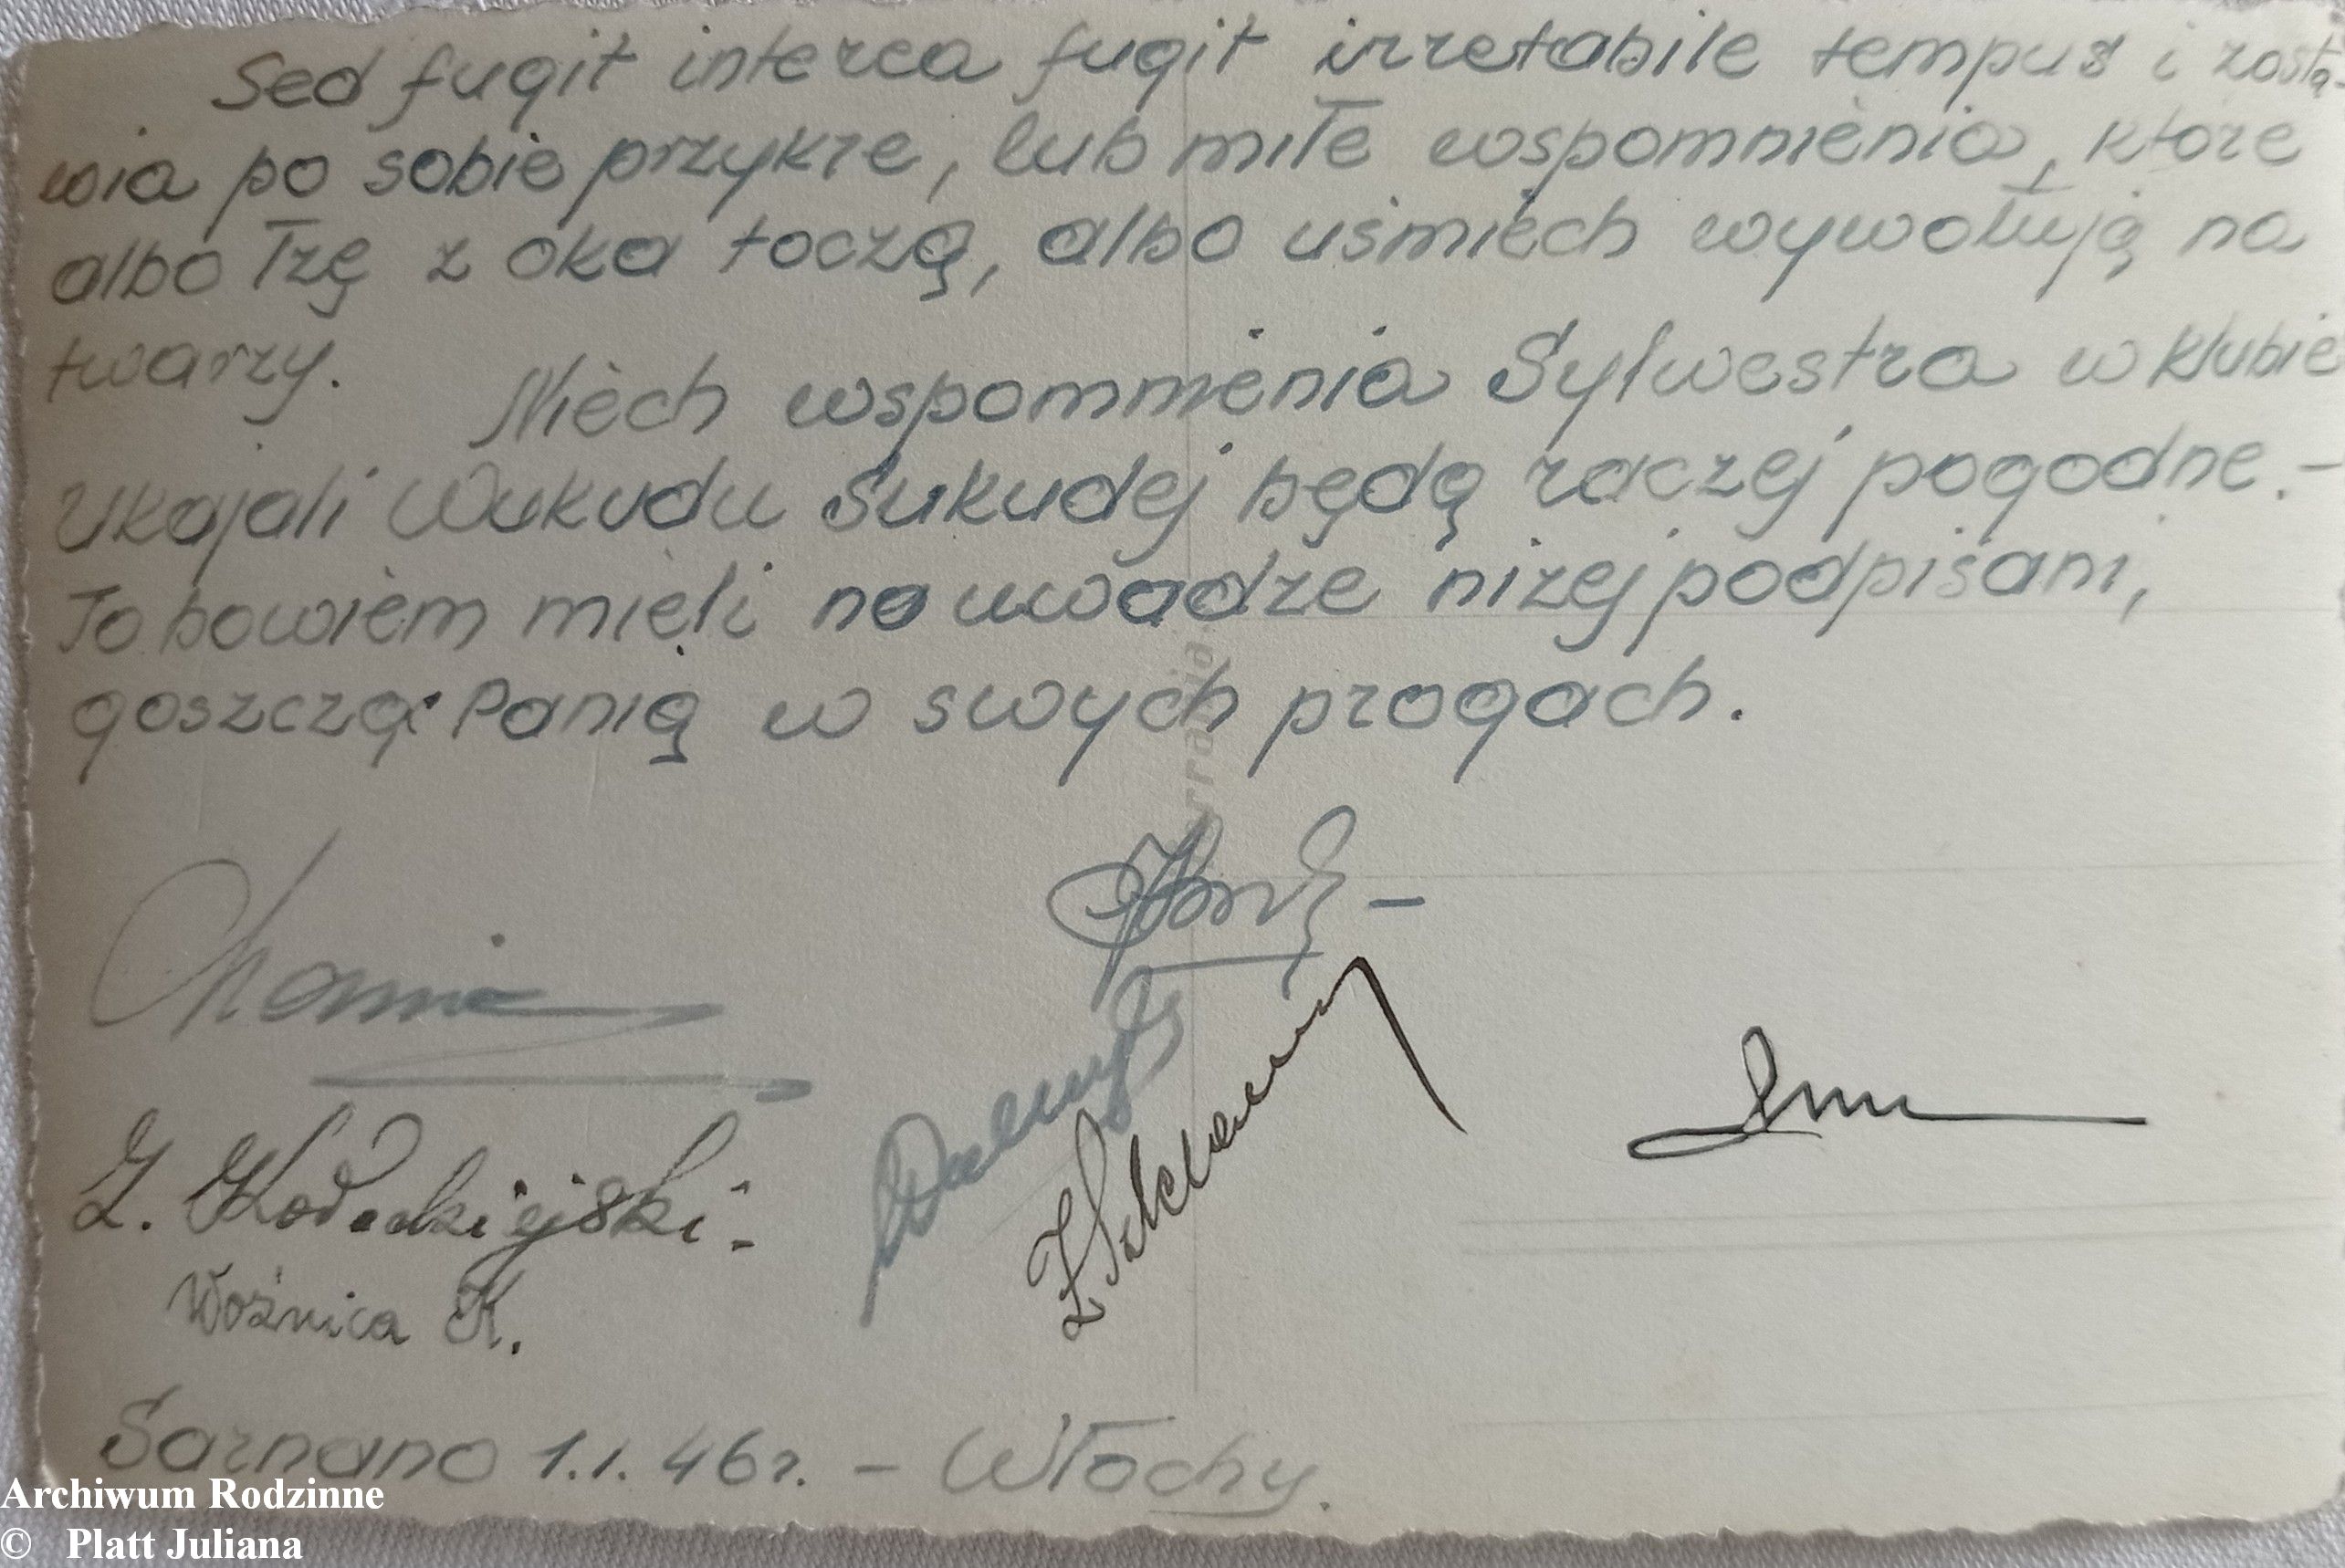 Sed fugit interea fugit irretabile tempus i zosta-
wia po sobie przykre, lub miłe wspomnienia, które
albo łzę z oka toczą, albo uśmiech wywołują na
twarzy. Niech wspomnienia Sylwestra w klubie
Ukajali Wukudu Sukudej będą raczej pogodne.-
To bowiem mieli na uwadze niżej podpisani,
goszcząc Panią w swych progach.
Woźnica K.
Sarnano 1.I.46r. - Włochy.
Archiwum Rodzinne
© Platt Juliana